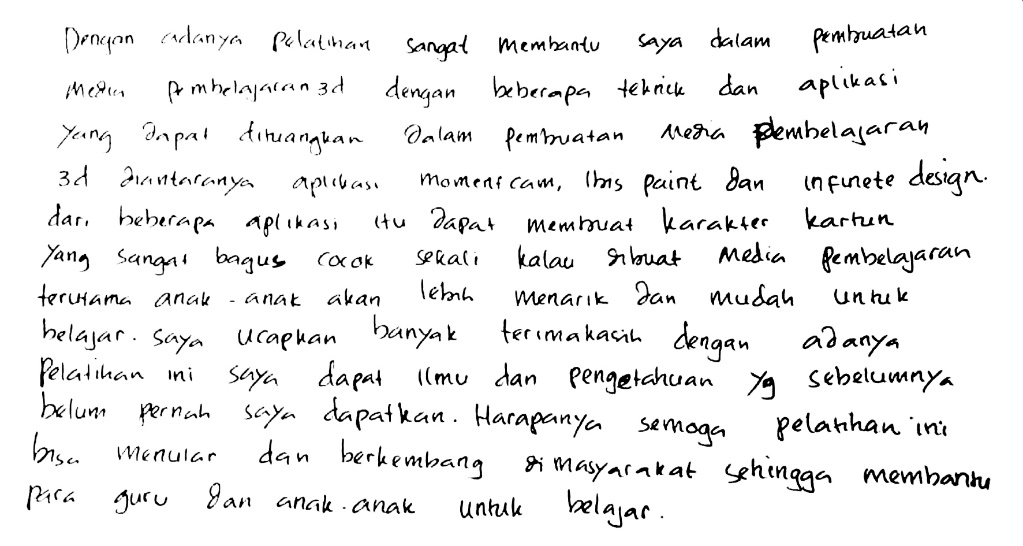 Dengan adanya Pelatihan sangat membantu saya dalam pembuatan
Media pembelajaran 3d dengan beberapa teknick dan aplikasi
yang dapat dituangkan dalam pembuatan Media pembelajaran
3d diantaranya aplikasi moment cam, Ibis paint dan infinete design.
dari beberapa aplikasi itu dapat membuat karakter kartun
yang sangat bagus cocok sekali kalau dibuat Media pembelajaran
terutama anak-anak akan lebih menarik dan mudah untuk
belajar. saya ucapkan banyak terimakasih dengan adanya
Pelatihan ini saya dapat ilmu dan pengetahuan yg sebelumnya
belum pernah saya dapatkan. Harapanya semoga pelatihan ini
bisa menular dan berkembang di masyarakat sehingga membantu
para guru dan anak-anak untuk belajar.